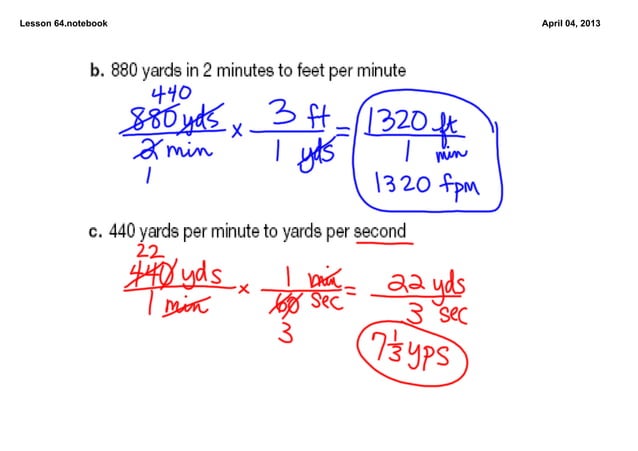 Lesson 64.notebook
April 04, 2013
b. 880 yards in 2 minutes to feet per minute
440
880 yds / 2 min × 3 ft / 1 yds = 1320 ft / 1 min
1
1320 fpm
c. 440 yards per minute to yards per second
22
440 yds / 1 min × 1 min / 60 sec = 22 yds / 3 sec
3
7 1/3 yps